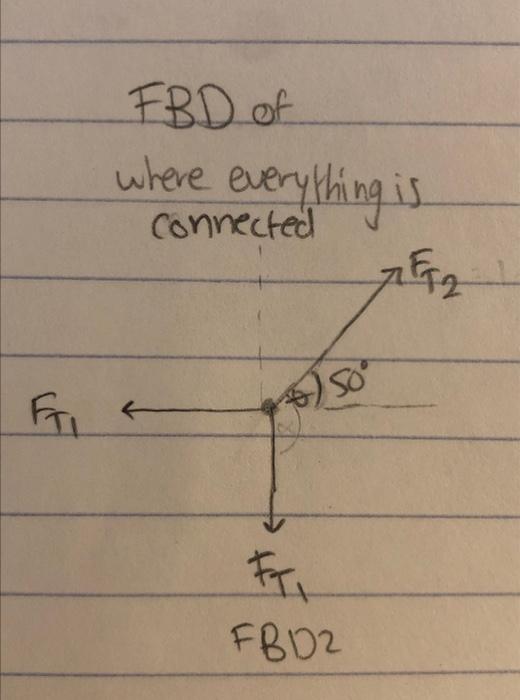 FBD of
where everything is
connected
F_T2
50°
F_T1
F_T1
FBD2